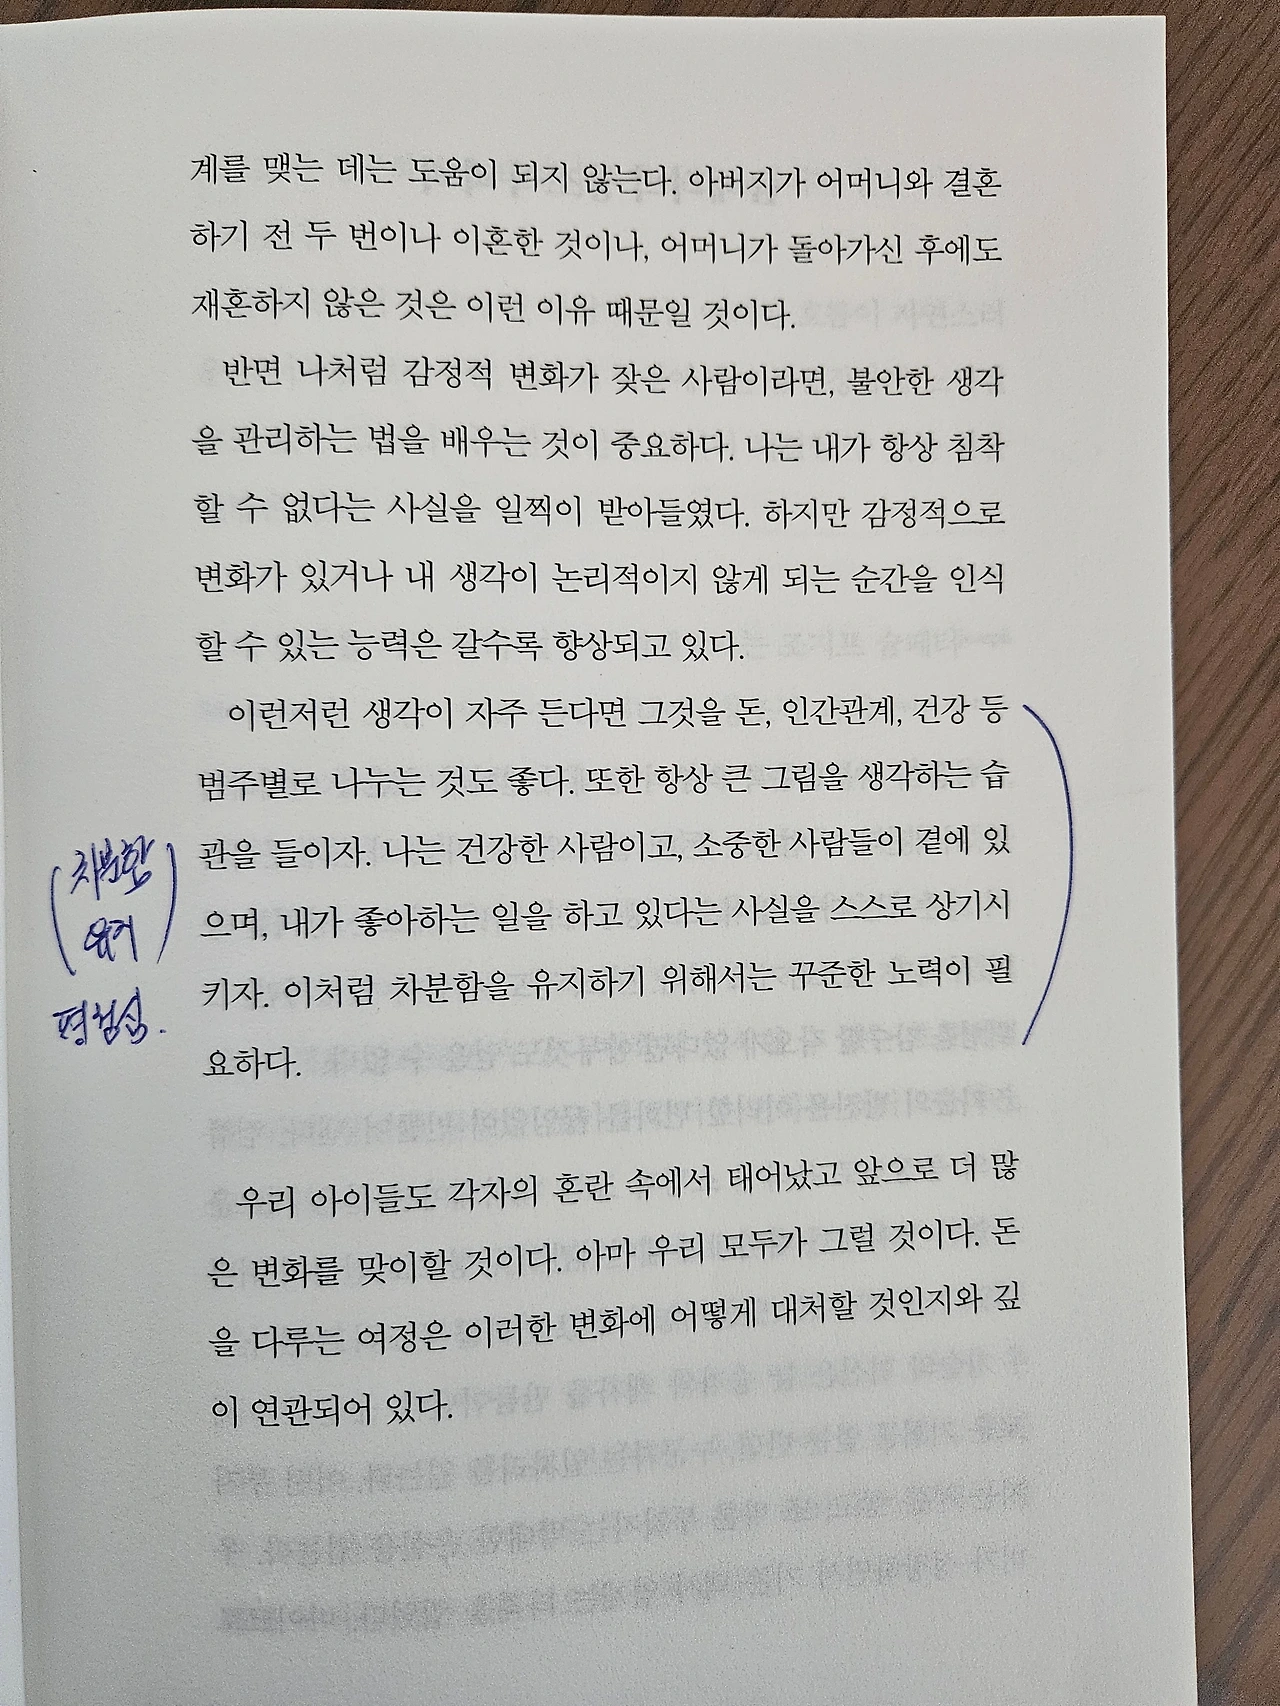 계를 맺는 데는 도움이 되지 않는다. 아버지가 어머니와 결혼
하기 전 두 번이나 이혼한 것이나, 어머니가 돌아가신 후에도
재혼하지 않은 것은 이런 이유 때문일 것이다.
반면 나처럼 감정적 변화가 잦은 사람이라면, 불안한 생각
을 관리하는 법을 배우는 것이 중요하다. 나는 내가 항상 침착
할 수 없다는 사실을 일찍이 받아들였다. 하지만 감정적으로
변화가 있거나 내 생각이 논리적이지 않게 되는 순간을 인식
할 수 있는 능력은 갈수록 향상되고 있다.
이런저런 생각이 자주 든다면 그것을 돈, 인간관계, 건강 등
범주별로 나누는 것도 좋다. 또한 항상 큰 그림을 생각하는 습
관을 들이자. 나는 건강한 사람이고, 소중한 사람들이 곁에 있
으며, 내가 좋아하는 일을 하고 있다는 사실을 스스로 상기시
키자. 이처럼 차분함을 유지하기 위해서는 꾸준한 노력이 필
요하다.
(차분함
유지)
평정심.
우리 아이들도 각자의 혼란 속에서 태어났고 앞으로 더 많
은 변화를 맞이할 것이다. 아마 우리 모두가 그럴 것이다. 돈
을 다루는 여정은 이러한 변화에 어떻게 대처할 것인지와 깊
이 연관되어 있다.